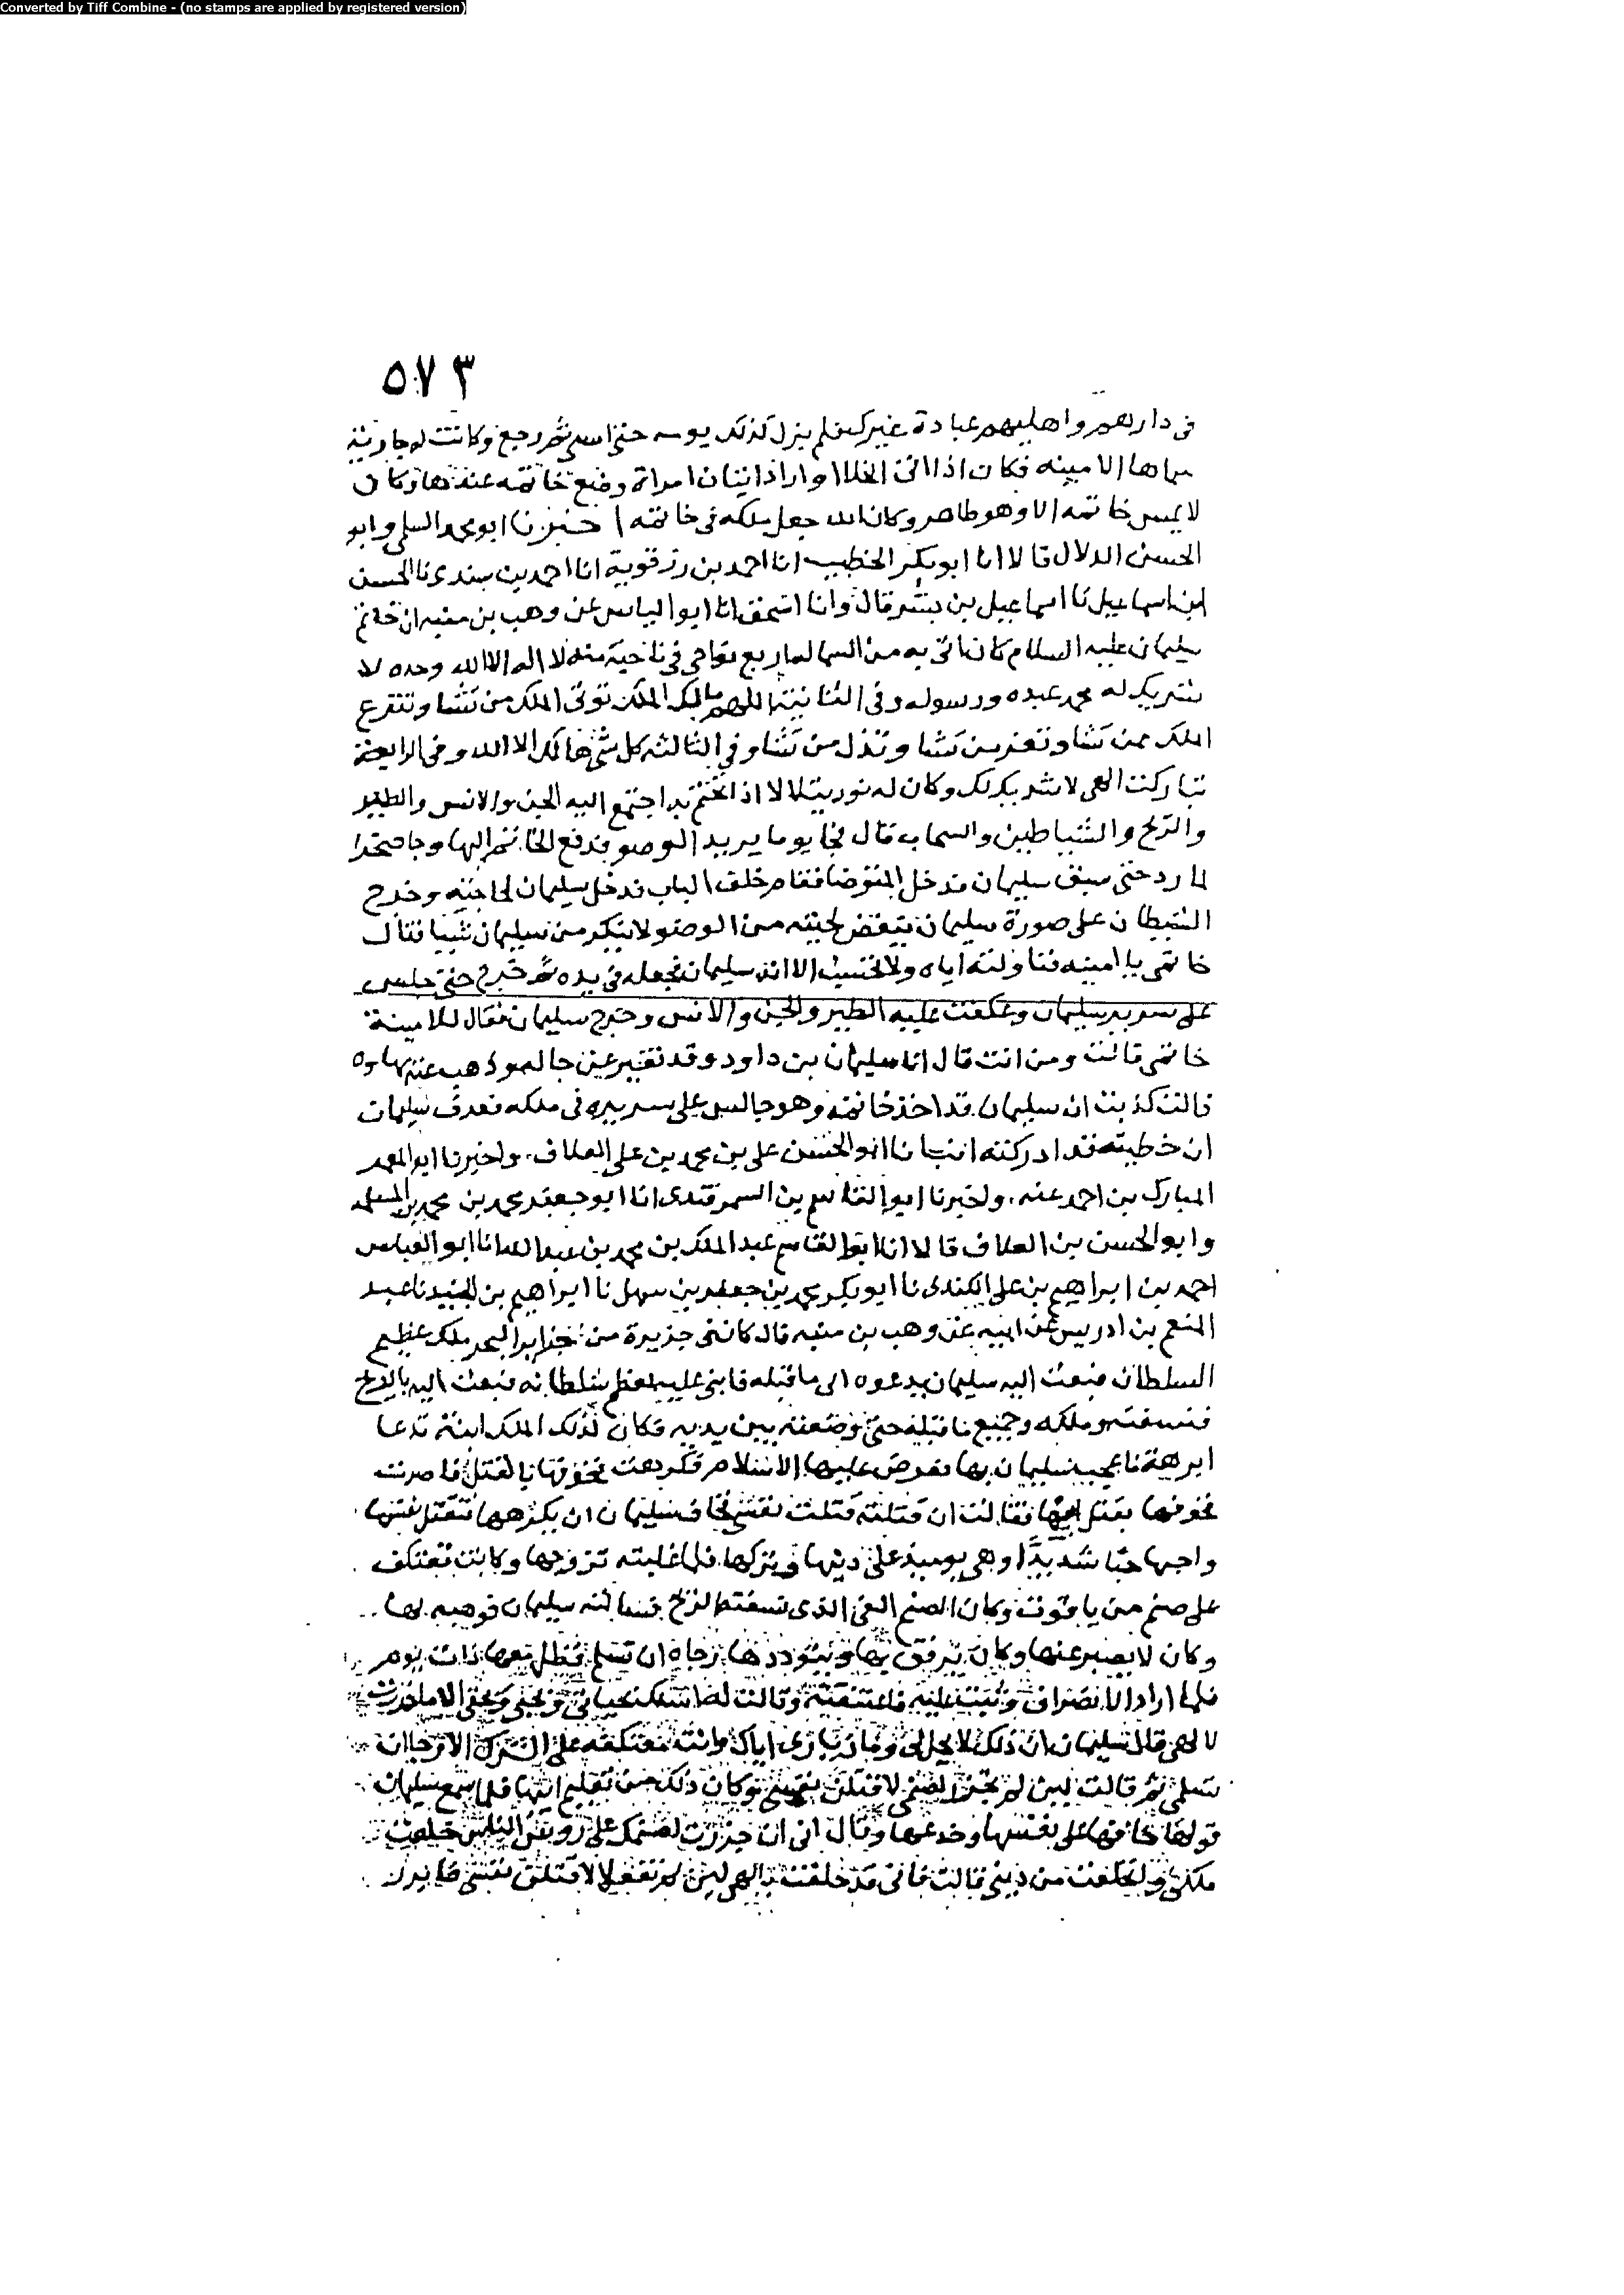 Converted by Tiff Combine - (no stamps are applied by registered version)
٥٧٣
في دارهم واهليهم عبادة غيرك فلم يزل كذلك يومه حتى امسى ثم رجع وكانت له جارية
سماها الامينه فكان اذا اتى الخلا واراد اتيان امراة وضع خاتمه عندها وكان
لا يمس خاتمه الا وهو طاهر وكان الله جعل ملكه في خاتمه اخبرنا ابو محمد السلمي وابو
الحسن الدلال قالا انا ابو بكر الخطيب انا احمد بن رزقوية انا احمد بن سندي نا الحسن
ابن اسماعيل نا اسماعيل بن بشر قال وانا اسحق انا ابو الياس عن وهب بن منبه ان خاتم
سليمان عليه السلام كان اتى به من السما له اربع نواحي في ناحية منه لا اله الا الله وحده لا
شريك له محمد عبده ورسوله وفي الثانية اللهم مالك الملك توتي الملك من تشا وتنزع
الملك ممن تشا وتعز من تشا وتذل من تشا وفي الثالثه كل شي هالك الا الله وفي الرابعة
تباركت الهي لا شريك لك وكان له نور يتلالا اذا تختم به اجتمع اليه الجن والانس والطير
والريح والشياطين والسحاب قال فجا يوما يريد الوضو فدفع الخاتم اليها وجا صخر
المارد حتى سبق سليمان فدخل المتوضا فقام خلف الباب فدخل سليمان لحاجته وخرج
الشيطان على صورة سليمان ينفض لحيته من الوضو لا ينكر من سليمان شيا فقال
خاتمي يا امينه فناولته اياه ولا تحسب الا انه سليمان فجعله في يده ثم خرج حتى جلس
على سرير سليمان وعكفت عليه الطير والجن والانس وخرج سليمان فقال للامينة
خاتمي قالت ومن انت قال انا سليمان بن داود وقد تغير عن حاله وذهب عنه بهاوه
قالت كذبت ان سليمان قد اخذ خاتمه وهو جالس على سريره في ملكه فعرف سليمان
ان خطيته قد ادركته انبانا ابو الحسن علي بن محمد بن علي العلاف واخبرنا ابو المعمر
المبارك بن احمد عنه واخبرنا ابو القاسم بن السمرقندي انا ابو جعفر محمد بن محمد بن المسلمة
وابو الحسن بن العلاف قالا انا ابو القاسم عبد الملك بن محمد بن عبد الله انا ابو العباس
احمد بن ابراهيم بن علي الكندي نا ابو بكر محمد بن جعفر بن سهل نا ابراهيم بن الجنيد نا عبد
المنعم بن ادريس عن ابيه عن وهب بن منبه قال كان في جزيرة من جزاير البحر ملك عظيم
السلطان فبعث اليه سليمان يدعوه الى ما قبله فابى عليه لعظم سلطانه فبعث اليه بالريح
فنسفته وملكه وجميع ما قبله حتى وضعته بين يديه فكان لذلك الملك ابنة تدعا
ابرهة فاعجب سليمان بها فعرض عليها الاسلام فكرهت فخوفها بالقتل فاصرت
فخوفها بقتل ابيها فقالت ان قتلته قتلت نفسي فخاف سليمان ان يكرهها فتقتل نفسها
واحبها حبا شديدا وهي يوميذ على دينها فتركها فلما غلبته تزوجها وكانت تعتكف
على صنم من ياقوت وكان الصنم الذي نسفته الريح فسالته سليمان فوهبه لها
وكان لا يصبر عنها وكان يترفق بها ويتوددها رجاه ان تسلم فظل معها ذات يوم
فلما اراد الانصراف وثبت عليه فاعتنقته وقالت له بحياتي وبحبي الا ما
لالهي قال سليمان ان ذلك لا يحل لي وما زيارتي اياك وانت معتكفه على الشرك الا رجا ان
تسلمي ثم قالت لين لم تجز لصنمي لاقتلن نفسي وكان ذلك من تعليم ابيها فلما سمع سليمان
قولها خافها على نفسها وخدعها وقال اني ان جزرت لصنمك على رووس الناس خلعت
ملكي وتخلعت من ديني قالت فاني قد حلفت بالهي لين لم تفعل لاقتلن نفسي فابرر